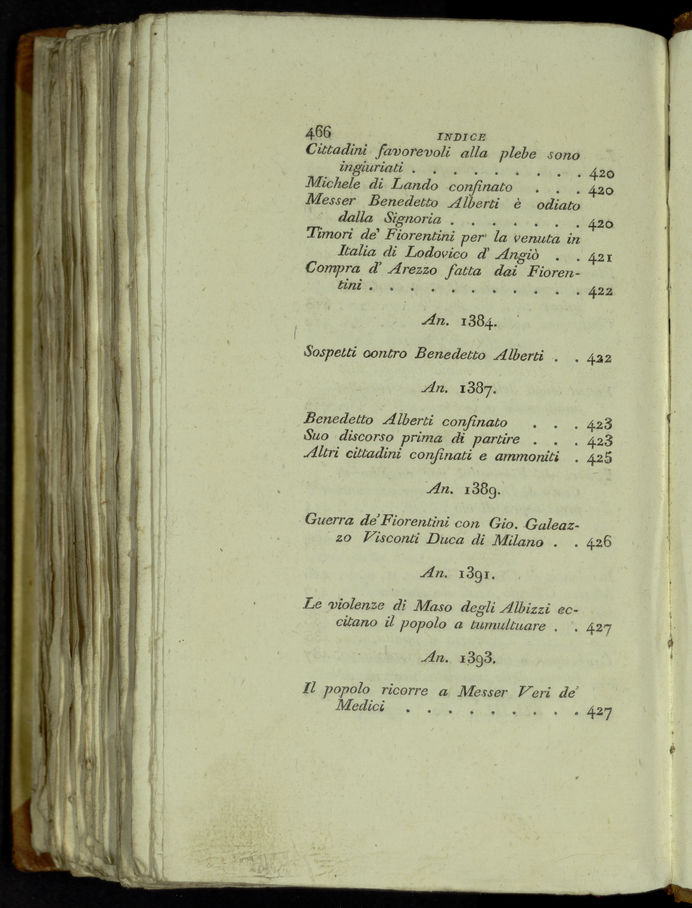 466 INDICE
Cittadini favorevoli alla plebe sono
ingiuriati . . . . . . . . . 420
Michele di Lando confinato . . . 420
Messer Benedetto Alberti è odiato
dalla Signoria . . . . . . . 420
Timori de' Fiorentini per la venuta in
Italia di Lodovico d' Angiò . . 421
Compra d' Arezzo fatta dai Fioren-
tini . . . . . . . . . . . 422
An. 1384.
Sospetti contro Benedetto Alberti . . 422
An. 1387.
Benedetto Alberti confinato . . . 423
Suo discorso prima di partire . . . 423
Altri cittadini confinati e ammoniti . 425
An. 1389.
Guerra de' Fiorentini con Gio. Galeaz-
zo Visconti Duca di Milano . . 426
An. 1391.
Le violenze di Maso degli Albizzi ec-
citano il popolo a tumultuare . . 427
An. 1393.
Il popolo ricorre a Messer Veri de'
Medici . . . . . . . . . 427